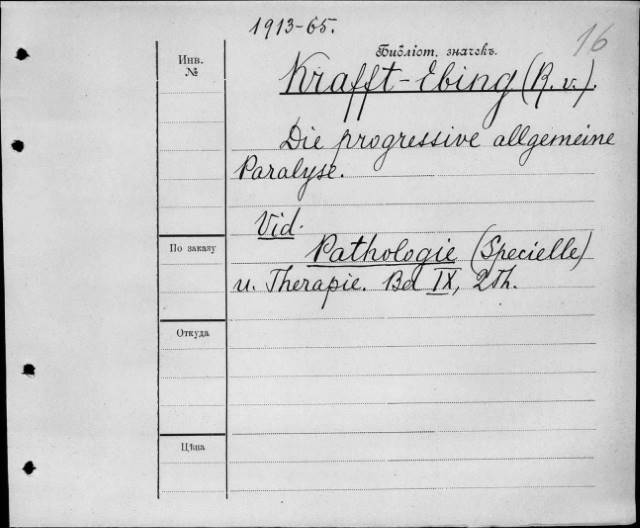 1913-65.
16
Библіот. значекъ.
Инв.
№
Krafft-Ebing (R. v.).
Die progressive allgemeine
Paralyse.
Vid.
Pathologie (Specielle)
u. Therapie. Bd IX, 2Th.
По заказу
Откуда
Цѣна